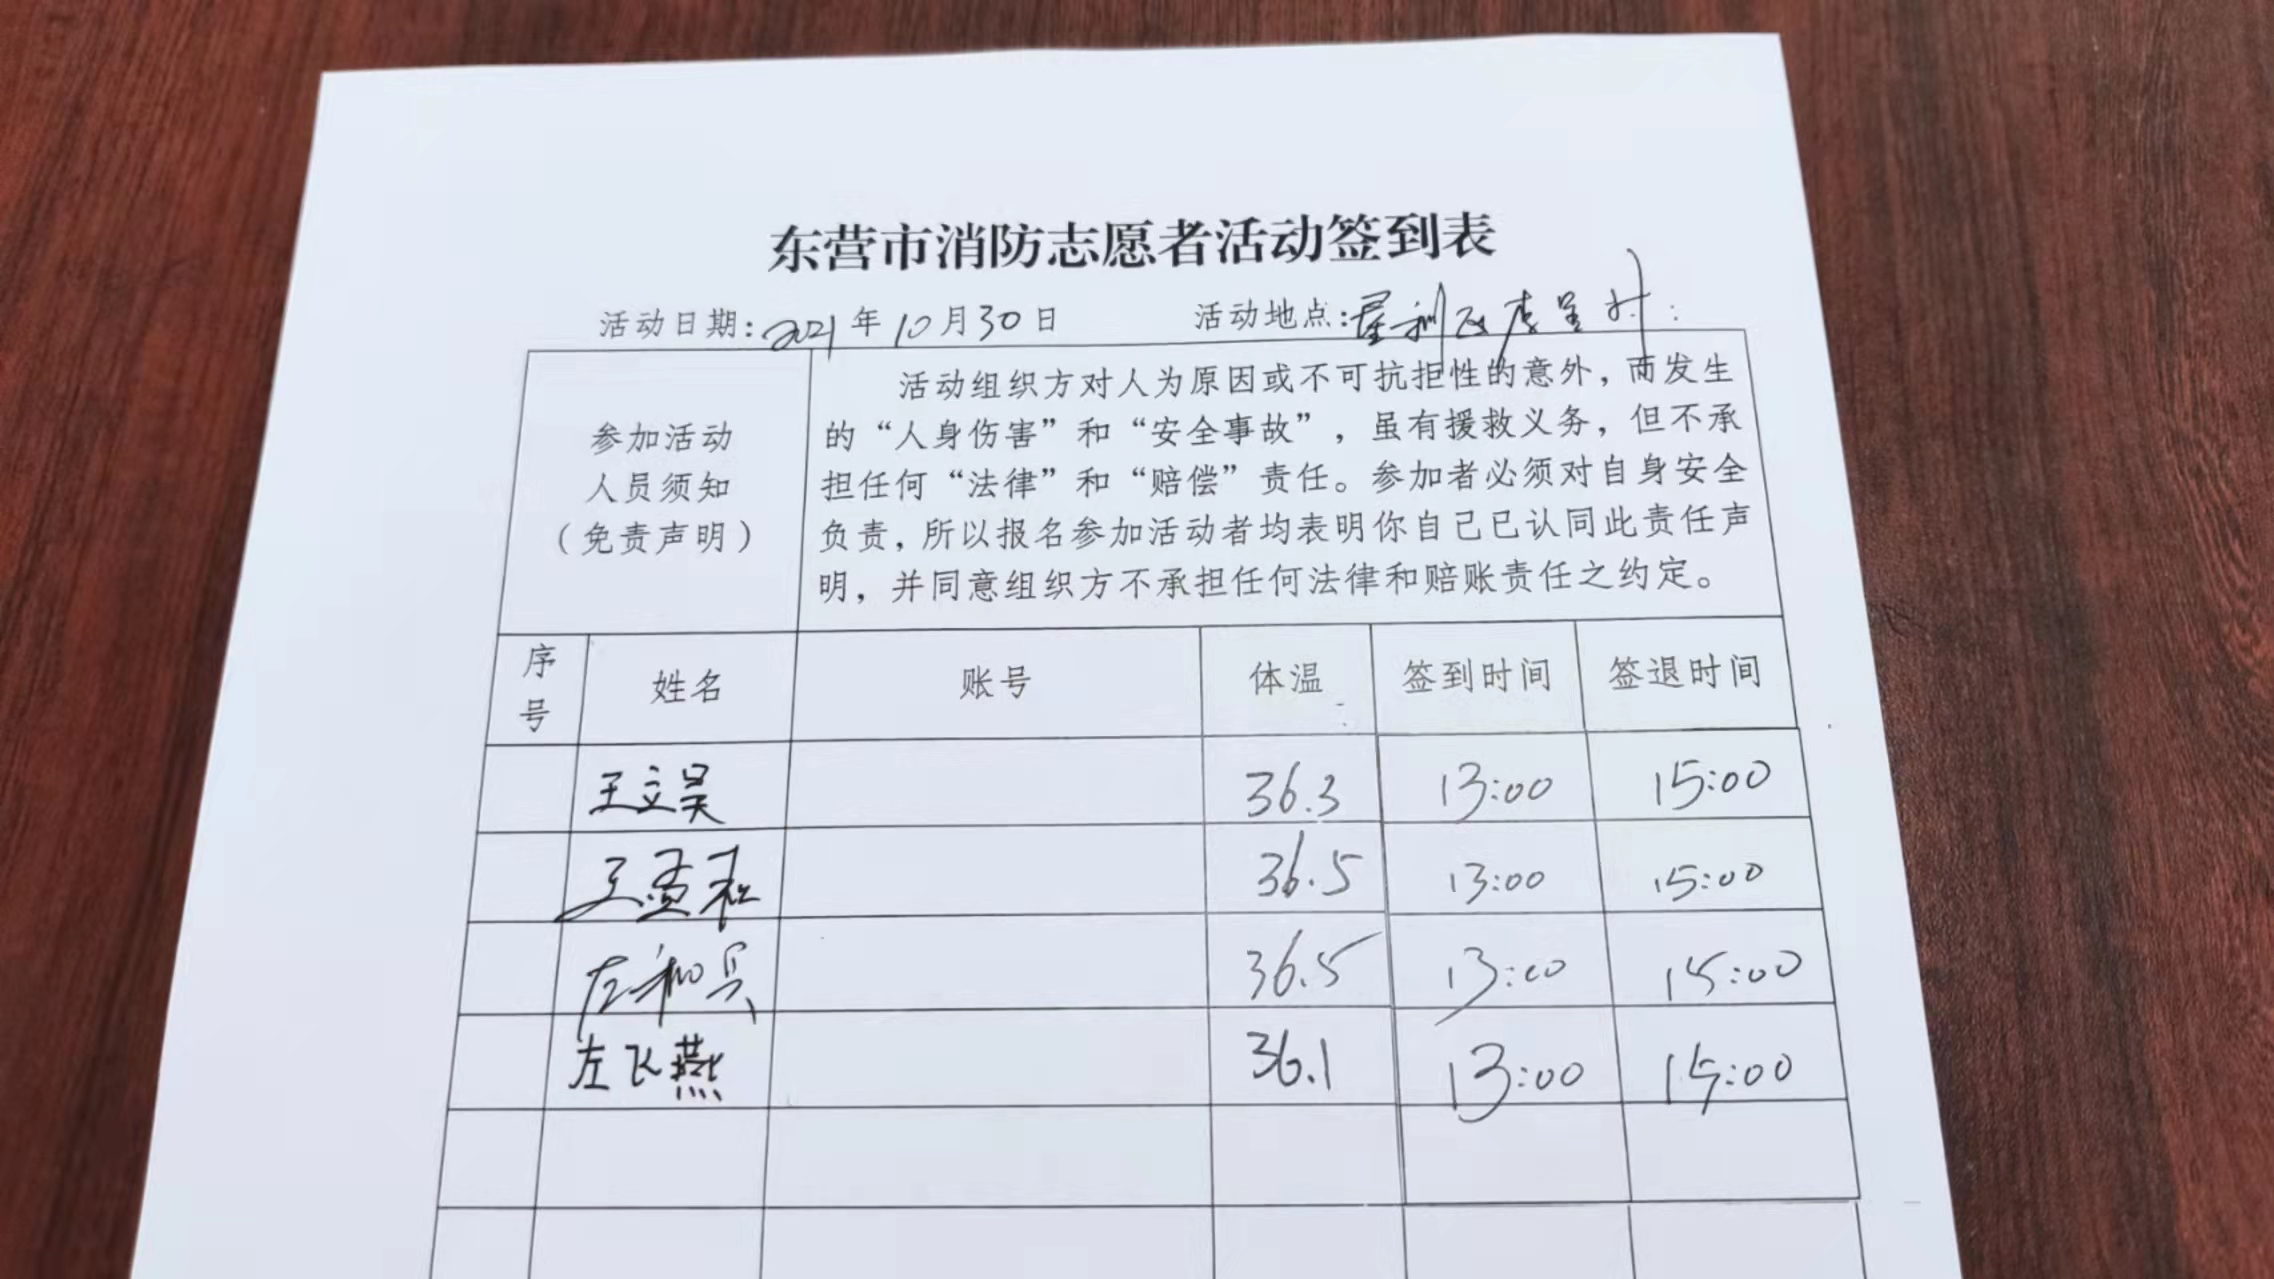 东营市消防志愿者活动签到表
活动日期:2021年10月30日 活动地点:垦利区李呈村
参加活动
人员须知
（免责声明）
活动组织方对人为原因或不可抗拒性的意外，而发生
的“人身伤害”和“安全事故”，虽有援救义务，但不承
担任何“法律”和“赔偿”责任。参加者必须对自身安全
负责，所以报名参加活动者均表明你自己已认同此责任声
明，并同意组织方不承担任何法律和赔账责任之约定。
序号 姓名 账号 体温 签到时间 签退时间
王立昊 36.3 13:00 15:00
王 36.5 13:00 15:00
左和兵 36.5 13:00 15:00
左飞燕 36.1 13:00 15:00